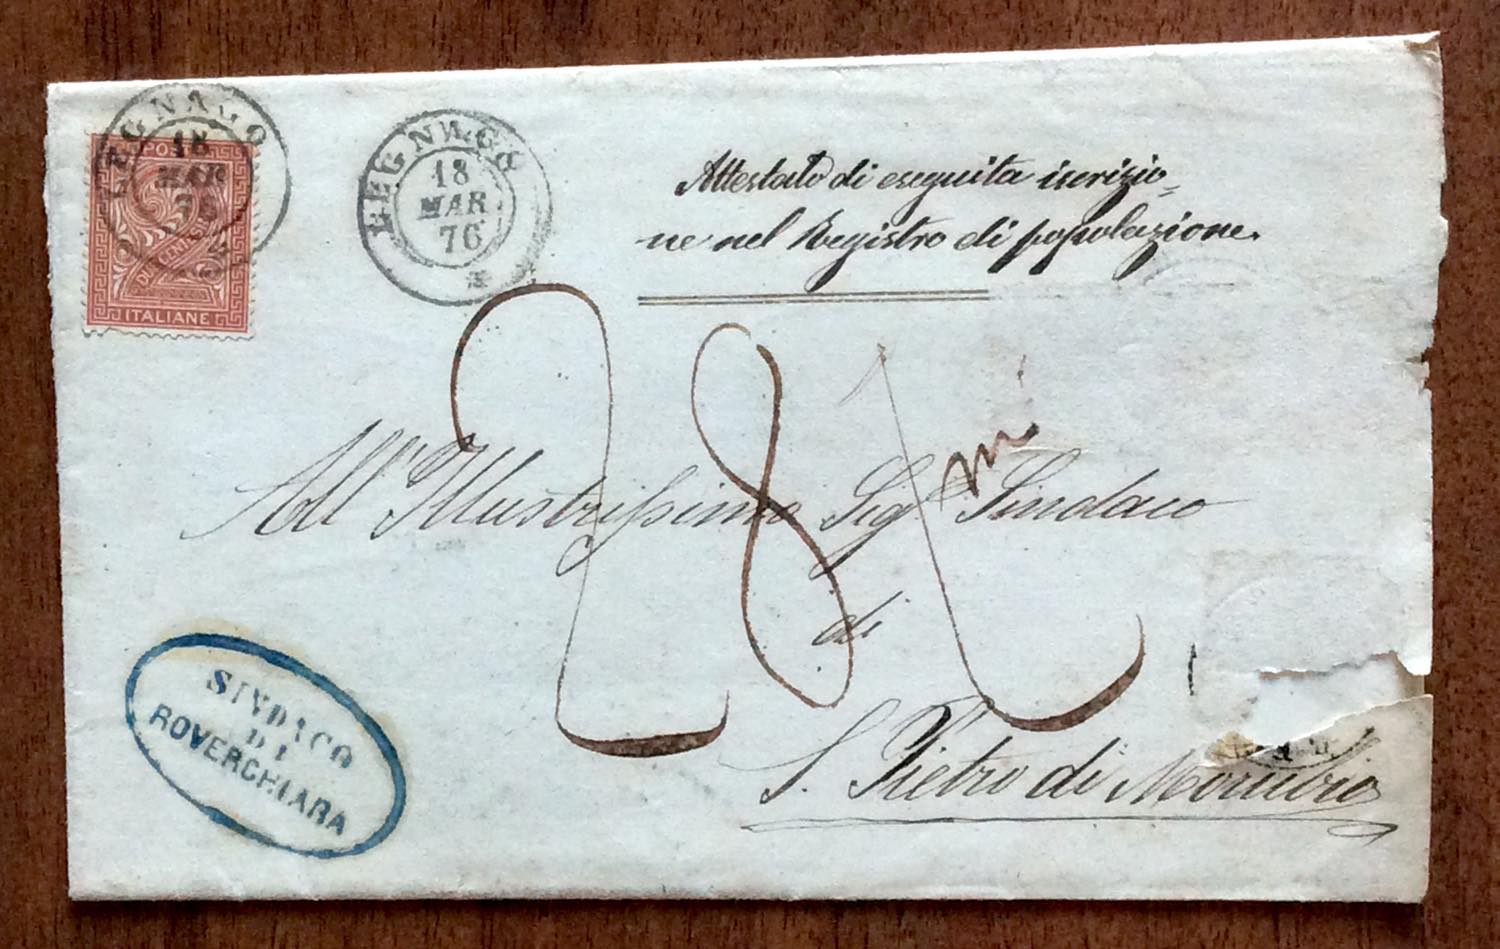 LEGNAGO
18
MAR
76
POSTE
DUE CENT
2
ITALIANE
LEGNAGO
18
MAR
76
Attestato di eseguita iscrizio-
ne nel Registro di popolazione.
281
All'Illustrissimo Sigr Sindaco
di
S. Pietro di Morubio
SINDACO
DI
ROVERCHIARA